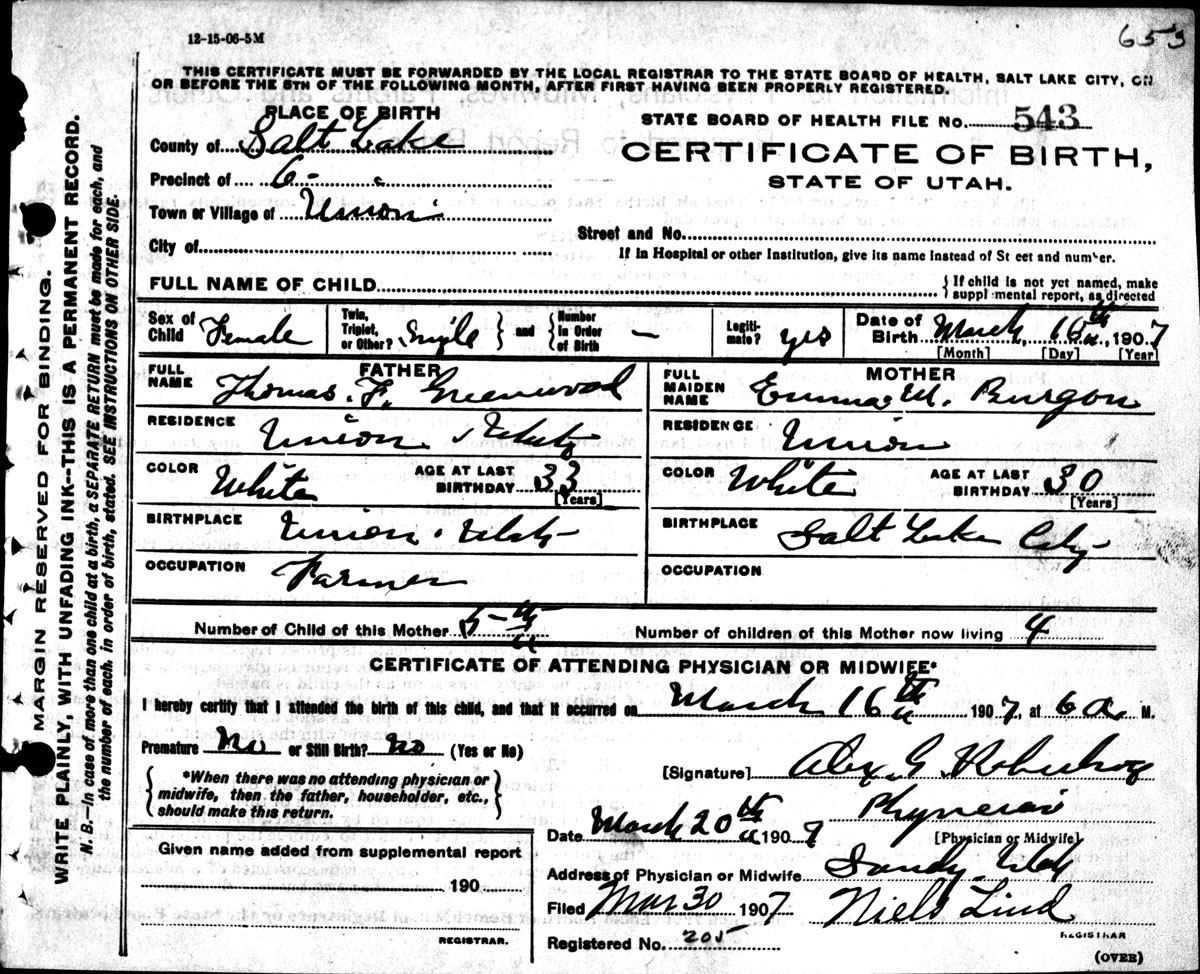 12-15-06-5M
653
THIS CERTIFICATE MUST BE FORWARDED BY THE LOCAL REGISTRAR TO THE STATE BOARD OF HEALTH, SALT LAKE CITY, ON
OR BEFORE THE 5TH OF THE FOLLOWING MONTH, AFTER FIRST HAVING BEEN PROPERLY REGISTERED.
PLACE OF BIRTH
STATE BOARD OF HEALTH FILE NO. 543
County of Salt Lake
CERTIFICATE OF BIRTH,
STATE OF UTAH.
Precinct of 6
Town or Village of Union
Street and No.
City of
If in Hospital or other Institution, give its name instead of St eet and number.
FULL NAME OF CHILD
{ If child is not yet named, make
suppl mental report, as directed
Sex of Child Female
Twin, Triplet, or Other? Single } and { Number in Order of Birth —
Legitimate? yes
Date of Birth March 16th 1907
[Month] [Day] [Year]
FATHER
FULL NAME Thomas. F. Greenwood
RESIDENCE Union Utah
COLOR White
AGE AT LAST BIRTHDAY 33
[Years]
BIRTHPLACE Union. Utah
OCCUPATION Farmer
MOTHER
FULL MAIDEN NAME Emma M. Burgon
RESIDENCE Union
COLOR White
AGE AT LAST BIRTHDAY 30
[Years]
BIRTHPLACE Salt Lake City
OCCUPATION
Number of Child of this Mother 5th
Number of children of this Mother now living 4
CERTIFICATE OF ATTENDING PHYSICIAN OR MIDWIFE*
I hereby certify that I attended the birth of this child, and that it occurred on March 16th 1907, at 6 a. M.
Premature No or Still Birth? No (Yes or No)
*When there was no attending physician or
midwife, then the father, householder, etc.,
should make this return.
[Signature] Alex. G.
Physician
Date March 20th 1907
[Physician or Midwife]
Given name added from supplemental report
190
REGISTRAR.
Address of Physician or Midwife Sandy Utah
Filed Mar 30 1907 Niels Lind
REGISTRAR
Registered No. 205
(OVER)
MARGIN RESERVED FOR BINDING.
WRITE PLAINLY, WITH UNFADING INK--THIS IS A PERMANENT RECORD.
N. B.—In case of more than one child at a birth, a SEPARATE RETURN must be made for each, and
the number of each. in order of birth, stated. SEE INSTRUCTIONS ON OTHER SIDE.